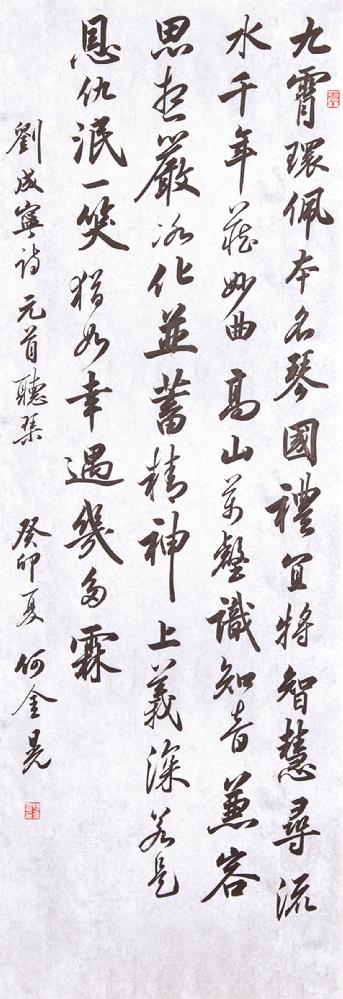 九霄環佩本名琴國禮宜將智慧尋流
水千年藏妙曲高山萬壑識知音兼容
思想嚴冰化並蓄精神上義深若是
恩仇泯一笑猶如幸遇幾多霖
劉成寧诗元首聽琴 癸卯夏何金晃